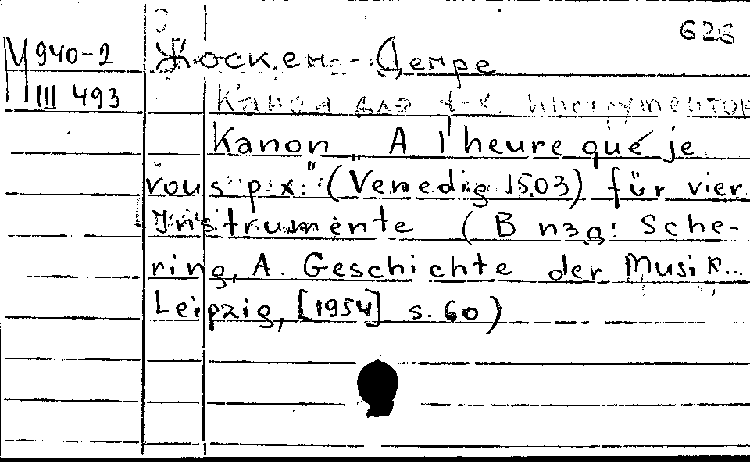 626
М 940-2
III 493
Жоскен-Депре
Канон для 4-х инструментов
Kanon „A l'heure que je
vous p.x." (Venedig 1503) für vier
Instrumente (В изд: Sche-
ring, A. Geschichte der Musik...
Leipzig, [1954] s. 60)